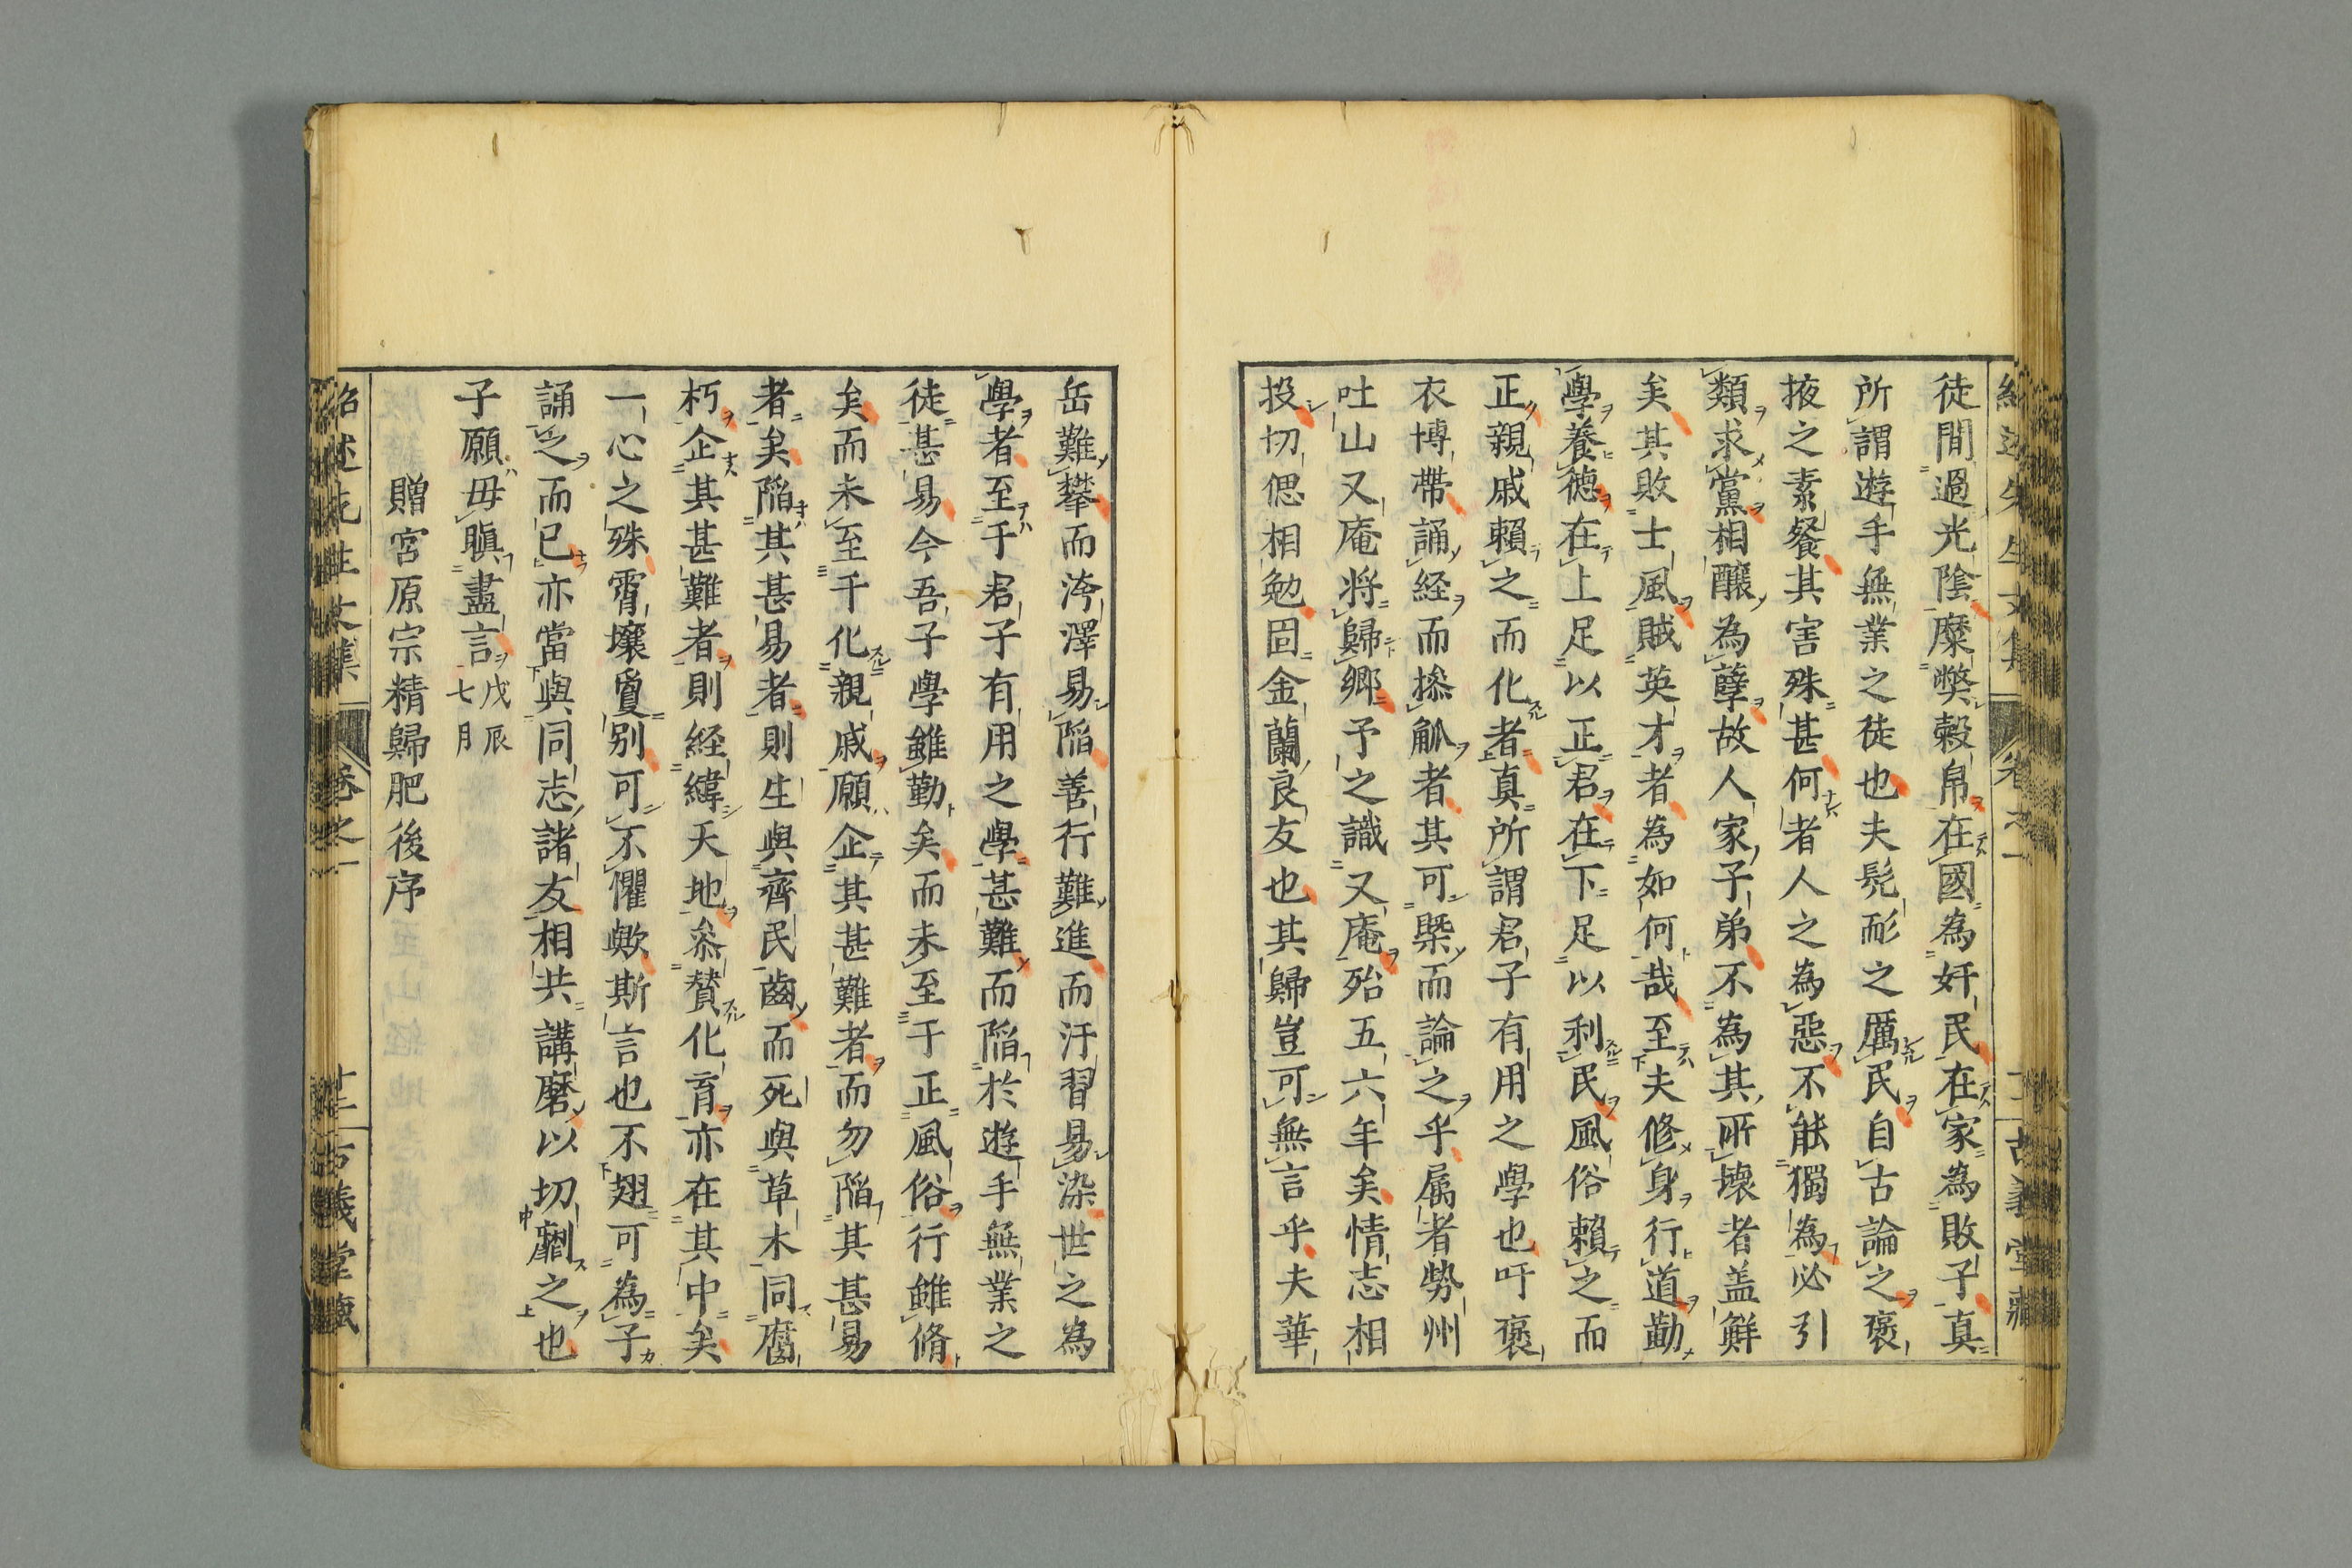 徒間過光陰糜弊穀帛在國為奸民在家為敗子真
所謂遊手無業之徒也夫髡形之厲民自古論之褒
掖之素餐其害殊甚何者人之為惡不能獨為必引
類求黨相釀為孽故人家子弟不為其所壞者盖鮮
矣其敗士風賊英才者為如何哉至夫修身行道勤
學養德在上足以正君在下足以利民風俗賴之而
正親戚賴之而化者真所謂君子有用之學也吁褒
衣博帶誦経而摻觚者其可槩而論之乎属者勢州
吐山又庵将歸郷予之識又庵殆五六年矣情志相
投切偲相勉固金蘭良友也其歸豈可無言乎夫華
岳難攀而洿澤易陥善行難進而汙習易染世之為
學者至于君子有用之學甚難而陥於遊手無業之
徒甚易今吾子學雖勤矣而未至于正風俗行雖脩
矣而未至于化親戚願企其甚難者而勿陥其甚易
者矣陥其甚易者則生與齊民齒而死與草木同腐
朽企其甚難者則経緯天地叅賛化育亦在其中矣
一心之殊霄壤夐别可不懼歟斯言也不翅可為子
誦之而已亦當與同志諸友相共講磨以切劘之也
子願毋瞋盡言戊辰七月
贈宮原宗精歸肥後序
紹述先生文集 卷之一 十二 古義堂藏